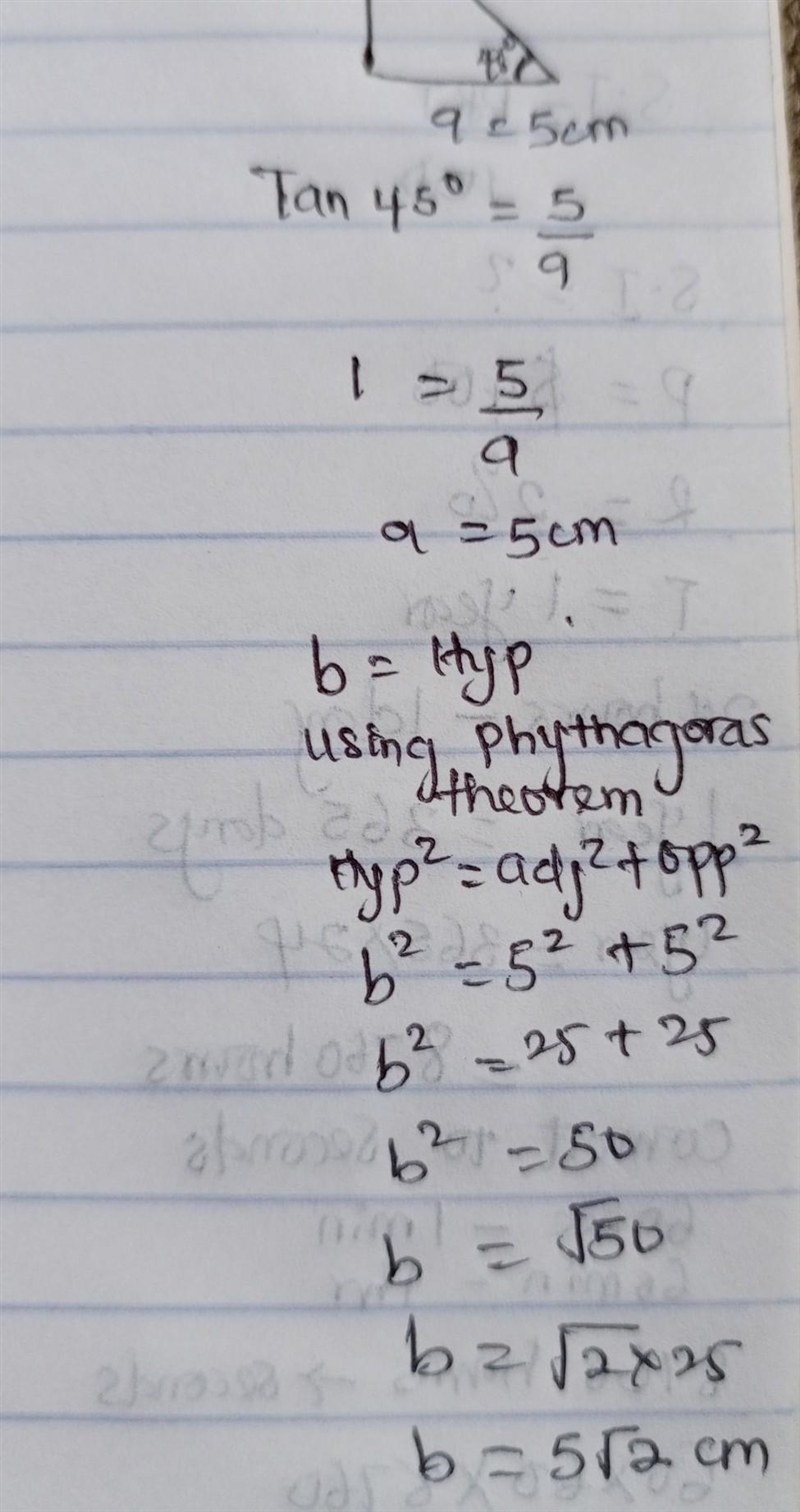 45°
a = 5cm
Tan 45° = 5/a
1 = 5/a
a = 5cm
b = Hyp
using phythagoras
theorem
Hyp² = adj² + opp²
b² = 5² + 5²
b² = 25 + 25
b² = 50
b = √50
b = √2×25
b = 5√2 cm